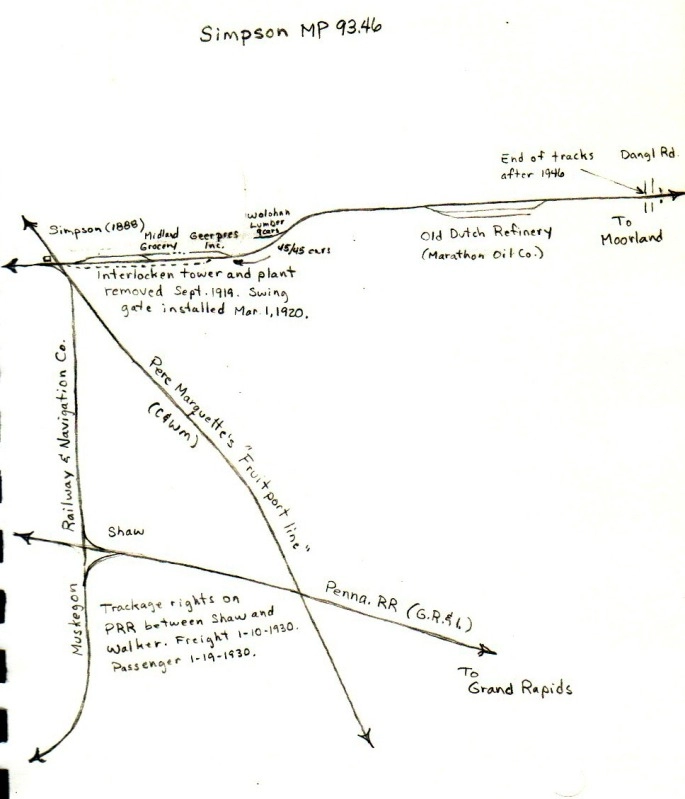 Simpson MP 93.46
End of tracks
after 1946
Dangl Rd.
To
Moorland
Simpson (1888)
Midland
Grocery
Geerpres
Inc.
Wolohan
Lumber
9cars
45/45 cars
Old Dutch Refinery
(Marathon Oil Co.)
Interlocken tower and plant
removed Sept. 1919. Swing
gate installed Mar. 1, 1920.
Muskegon Railway & Navigation Co.
Pere Marquette's "Fruitport line"
(C&WM)
Shaw
Trackage rights on
PRR between Shaw and
Walker. Freight 1-10-1930.
Passenger 1-19-1930.
Penna. RR (G.R.& I.)
To
Grand Rapids